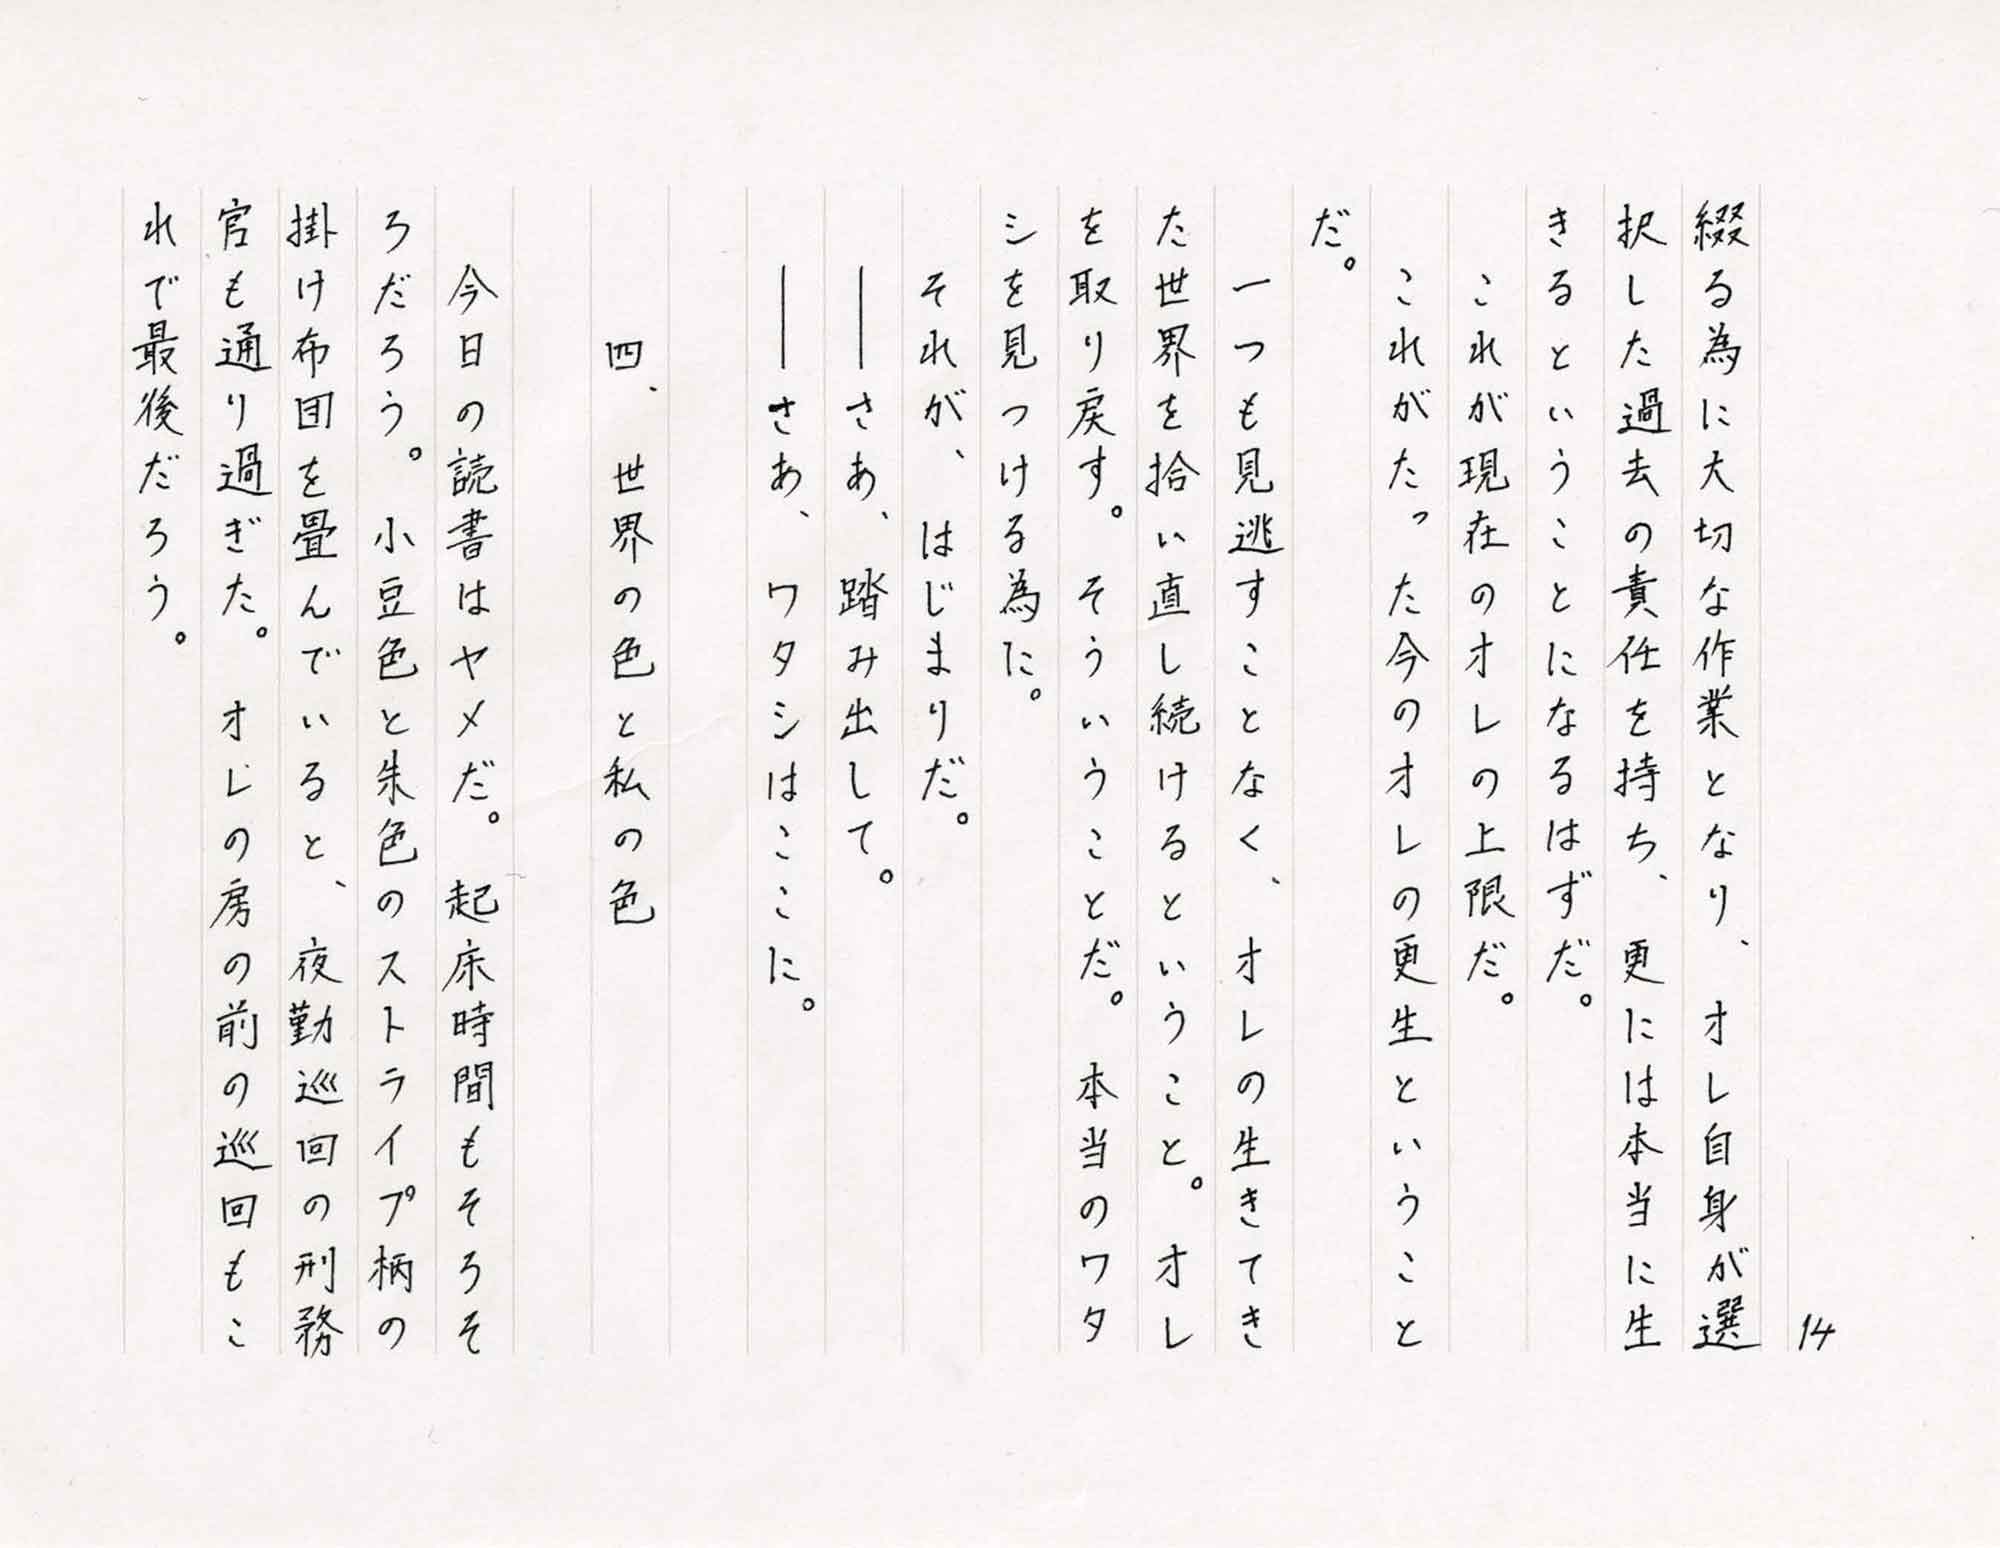 14
綴る為に大切な作業となり、オレ自身が選
択した過去の責任を持ち、更には本当に生
きるということになるはずだ。
これが現在のオレの上限だ。
これがたった今のオレの更生ということ
だ。
一つも見逃すことなく、オレの生きてき
た世界を拾い直し続けるということ。オレ
を取り戻す。そういうことだ。本当のワタ
シを見つける為に。
それが、はじまりだ。
――さあ、踏み出して。
――さあ、ワタシはここに。
四、世界の色と私の色
今日の読書はヤメだ。起床時間もそろそ
ろだろう。小豆色と朱色のストライプ柄の
掛け布団を畳んでいると、夜勤巡回の刑務
官も通り過ぎた。オレの房の前の巡回もこ
れで最後だろう。